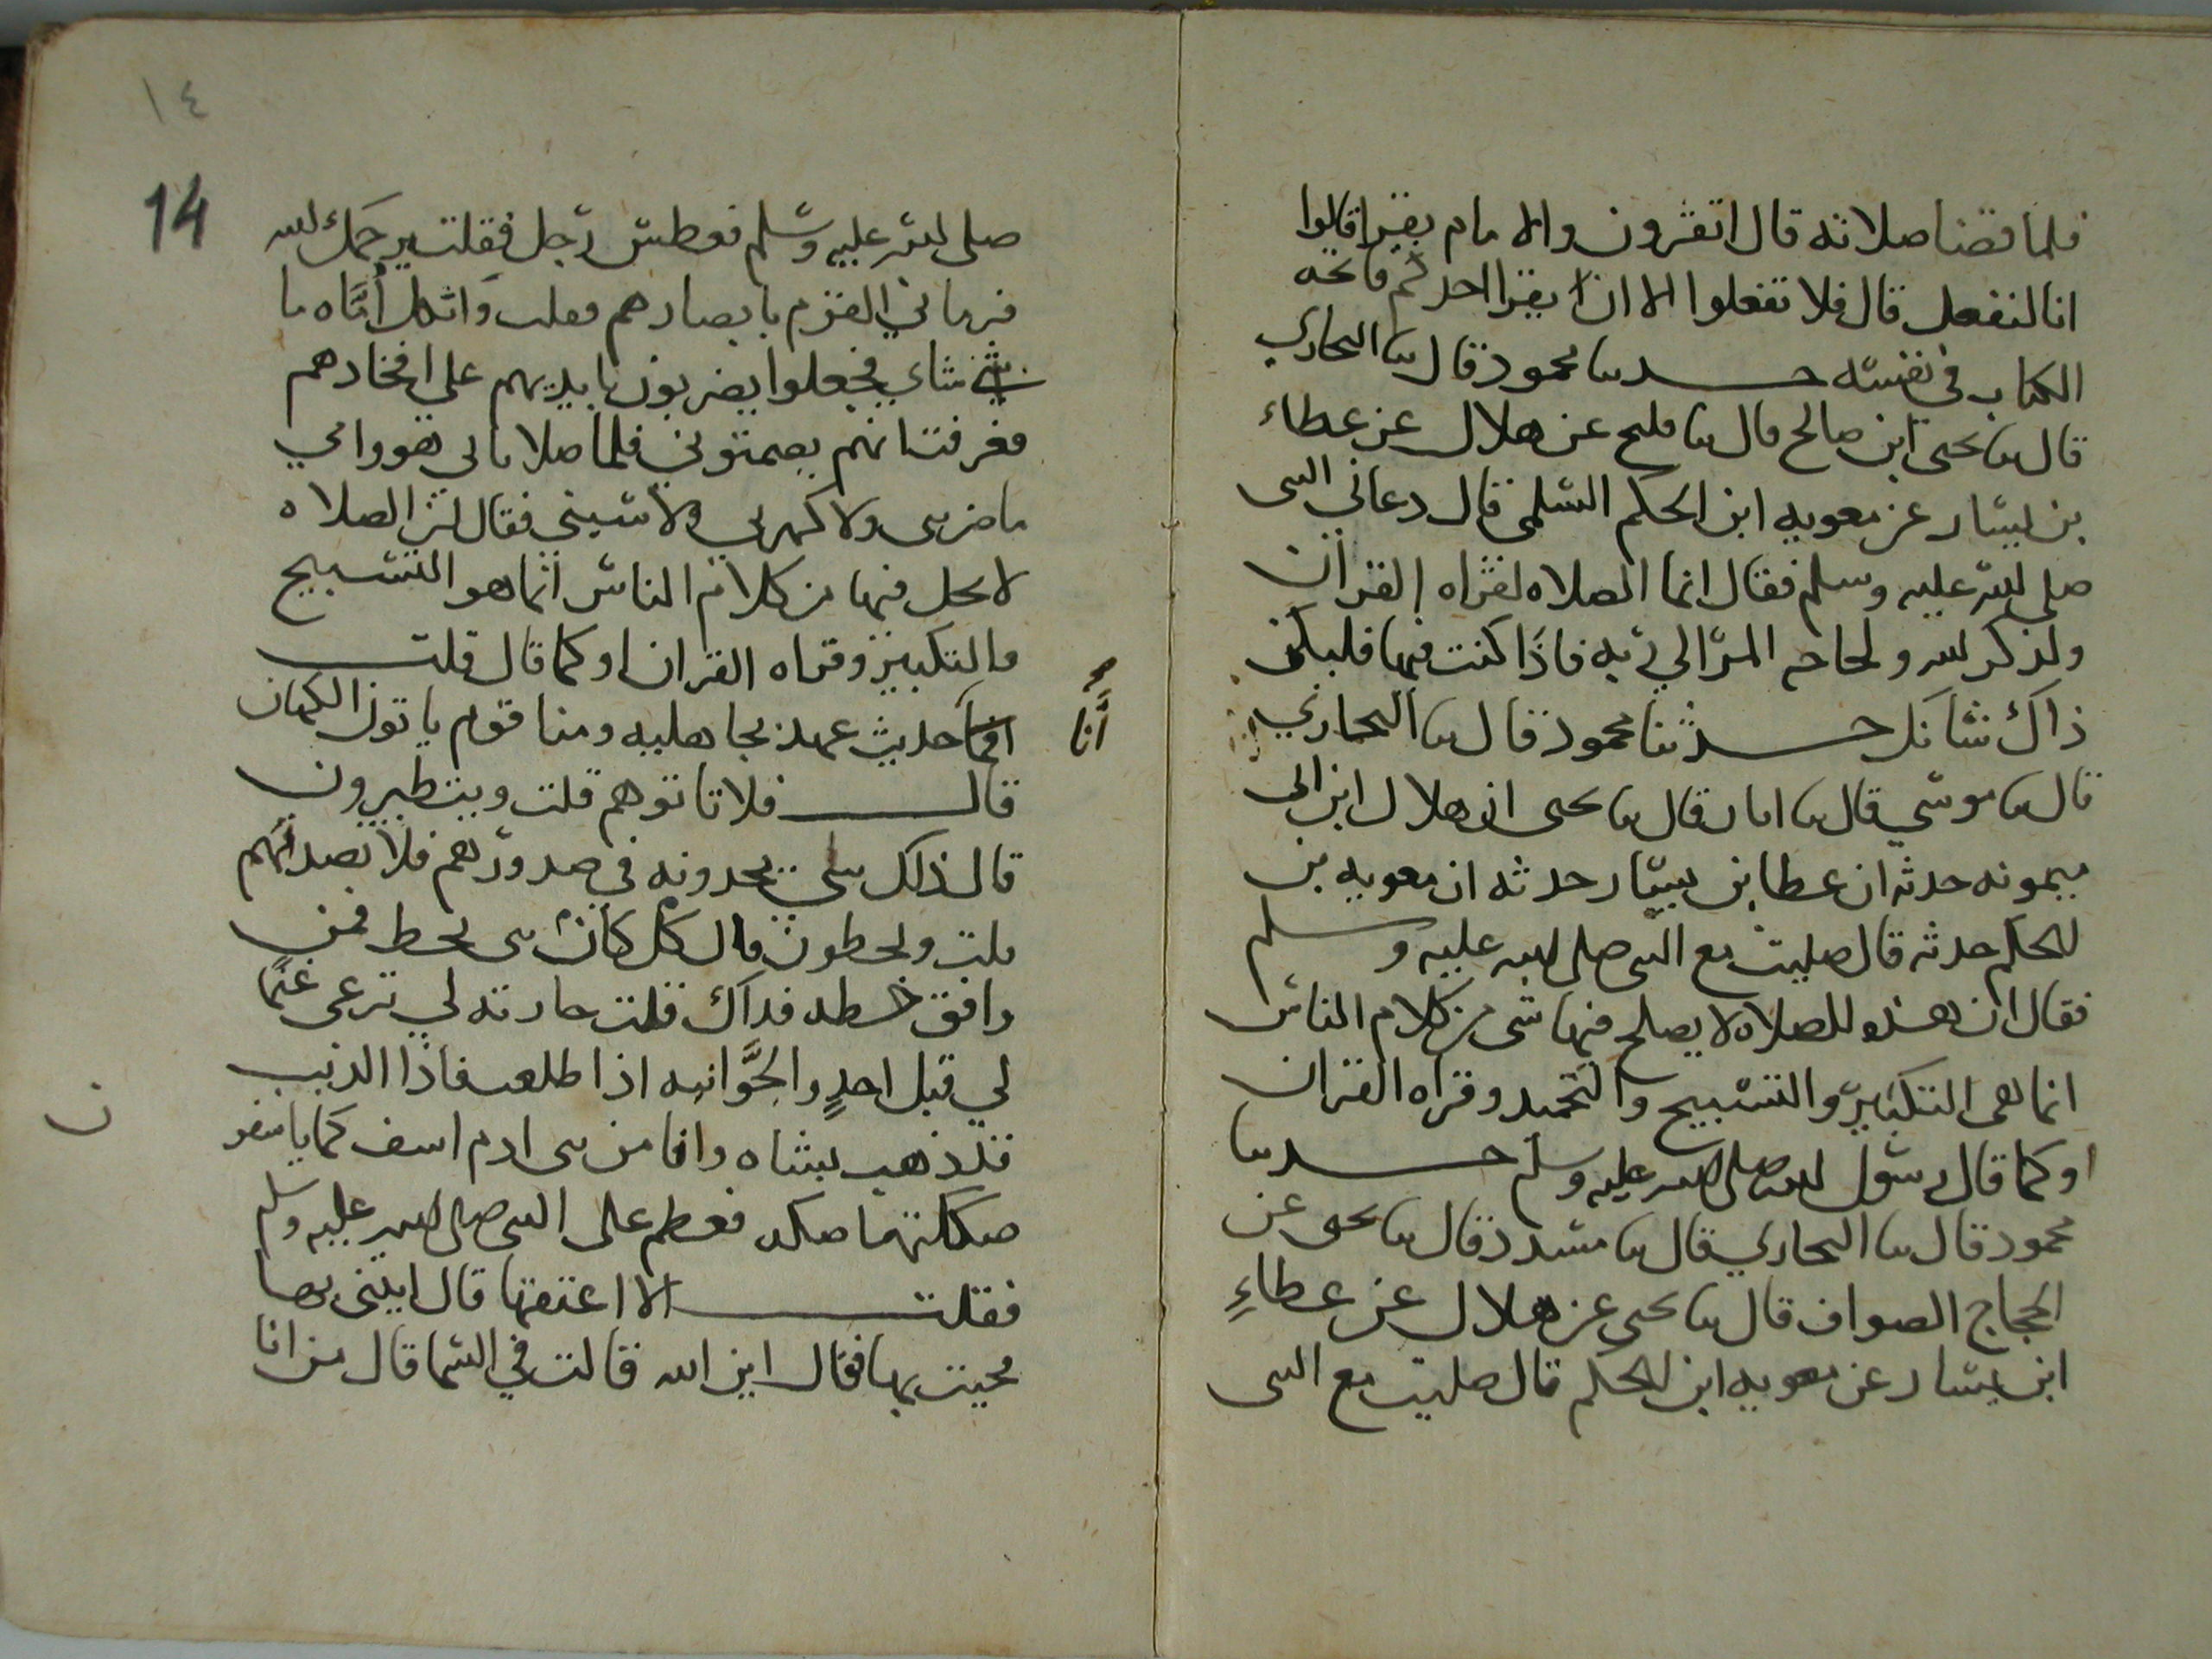 فلما قضا صلاته قال اتقرون والامام يقرا قالوا
انا لنفعل قال فلا تفعلوا الا ان يقرا احدكم فاتحه
الكتاب في نفسه حدثنا محمود قال ثنا البخاري
قال ثنا يحيى ابن صالح قال ثنا فليح عن هلال عن عطاء
بن يسار عن معويه ابن الحكم السلمي قال دعاني النبي
صلى الله عليه وسلم فقال انما الصلاه لقراه القران
ولذكر الله ولحاجه المرء الي ربه فاذا كنت فيها فليكن
ذاك شانك حدثنا محمود قال ثنا البخاري
قال ثنا موسي قال ثنا ابان قال ثنا يحيى ان هلال ابن ابي
ميمونه حدثه ان عطا بن يسار حدثه ان معويه بن
الحكم حدثه قال صليت مع النبي صلى الله عليه وسلم
فقال ان هذه الصلاه لا يصلح فيها شي من كلام الناس
انما هي التكبير والتسبيح والتحميد وقراه القران
او كما قال رسول الله صلى الله عليه وسلم حدثنا
محمود قال ثنا البخاري قال ثنا مسدد قال ثنا يحيى عن
الحجاج الصواف قال ثنا يحيى عن هلال عن عطاءِ
ابن يسار عن معويه ابن الحكم قال صليت مع النبي
١٤
14
صلى الله عليه وسلم فعطس رجل فقلت يرحمك الله
فرماني القوم بابصارهم فقلت واثكل أمَّاه ما
شاني فجعلوا يضربون بايديهم على افخادهم
فعرفت انهم يصمتوني فلما صلا بابي هو وامي
ما ضربني ولا كهرني ولا سبني فقال ان الصلاه
لا يحل فيها من كلام الناس انما هو التسبيح
والتكبير وقراه القران او كما قال قلت
انا حديث عهد بجاهليه ومنا قوم ياتون الكهان
أنَّا
قال فلا تاتوهم قلت ويتطيرون
قال ذلك شي يجدونه في صدورهم فلا يصدنهم
قلت ويخطون قال كان نبي يخط فمن
وافق خطه فذاك قلت جاريه لي ترعى غنمًا
لي قبل احدٍ والجوَّانيه اذا طلعت فاذا الذيب
قد ذهب بشاه وانا من بني ادم اسف كما ياسفو
ن
صككتها صكه فعظم على النبي صلى الله عليه وسلم
فقلت الا اعتقها قال ايتني بها
فجيت بها فقال اين الله قالت في السما قال من انا